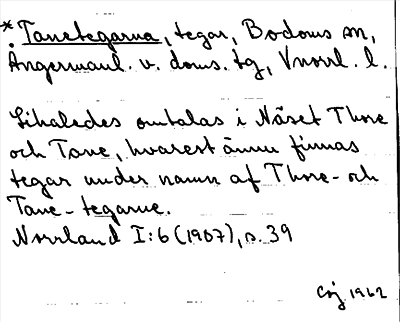 * Tanetegarna, tegar, Bodums sn,
Ångermanl. v. doms. tg, Vnorrl. l.
Likaledes omtalas i Näset Thore
och Tane, hvarest ännu finnas
tegar under namn af Thore- och
Tane-tegarne.
Norrland I:6 (1907), s. 39
1962